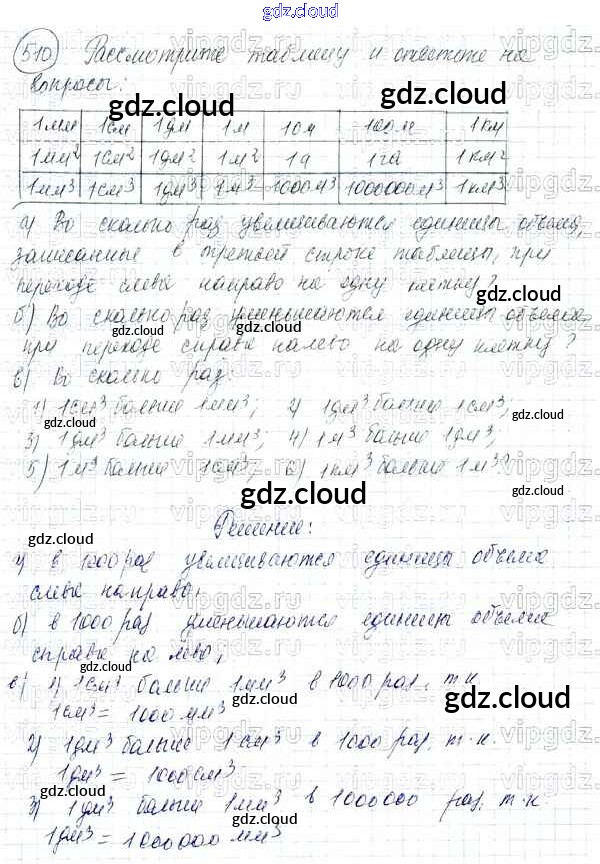 gdz.cloud
510 Рассмотрите таблицу и ответьте на
вопросы:
1 мм 1 см 1 дм 1 м 10 м 100 м 1 км
1 мм² 1 см² 1 дм² 1 м² 1 а 1 га 1 км²
1 мм³ 1 см³ 1 дм³ 1 м³ 1000 м³ 1000000 м³ 1 км³
а) Во сколько раз увеличиваются единицы объема,
записанные в третьей строке таблицы, при
переходе слева направо на одну клетку?
б) Во сколько раз уменьшаются единицы объема
при переходе справа налево на одну клетку?
в) Во сколько раз:
1) 1 см³ больше 1 мм³; 2) 1 дм³ больше 1 см³;
3) 1 дм³ больше 1 мм³; 4) 1 м³ больше 1 дм³;
5) 1 м³ больше 1 см³; 6) 1 км³ больше 1 м³?
gdz.cloud
Решение:
а) в 1000 раз увеличиваются единицы объема
слева направо,
б) в 1000 раз уменьшаются единицы объема
справа на лево;
в) 1) 1 см³ больше 1 мм³ в 1000 раз, т.к.
1 см³ = 1000 мм³
2) 1 дм³ больше 1 см³ в 1000 раз, т.к.
1 дм³ = 1000 см³
3) 1 дм³ больше 1 мм³ в 1000000 раз, т.к.
1 дм³ = 1000000 мм³